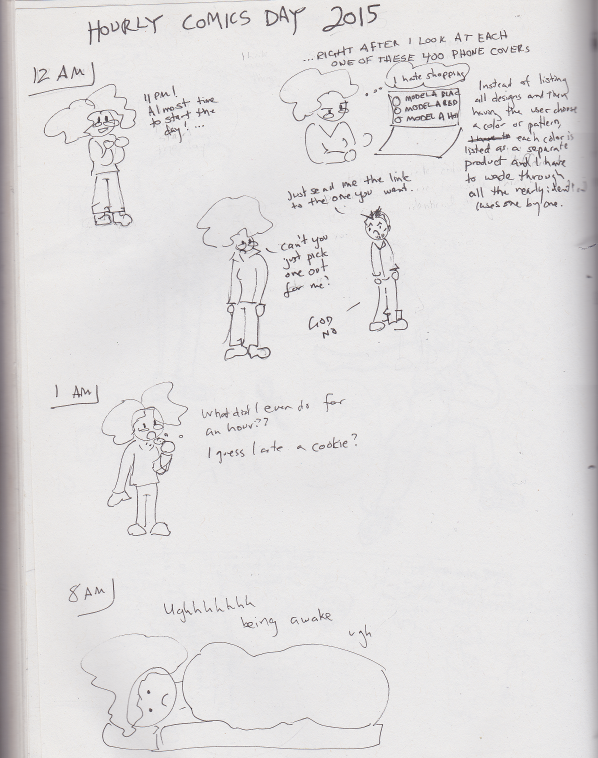 HOURLY COMICS DAY 2015
12 AM
11PM!
Almost time
to start the
day!...
...RIGHT AFTER I LOOK AT EACH
ONE OF THESE 400 PHONE COVERS
I hate shopping
MODEL A BLAC
MODEL A RED
MODEL A
Instead of listing
all designs and then
having the user choose
a color or pattern,
each color is
listed as a separate
product and I have
to wade through
all the nearly identical
cases one by one.
Just send me the link
to the one you want.
can't you
just pick
one out
for me?
GOD
NO
1 AM
What did I even do for
an hour??
I guess I ate a cookie?
8 AM
Ughhhhhhh
being awake
ugh